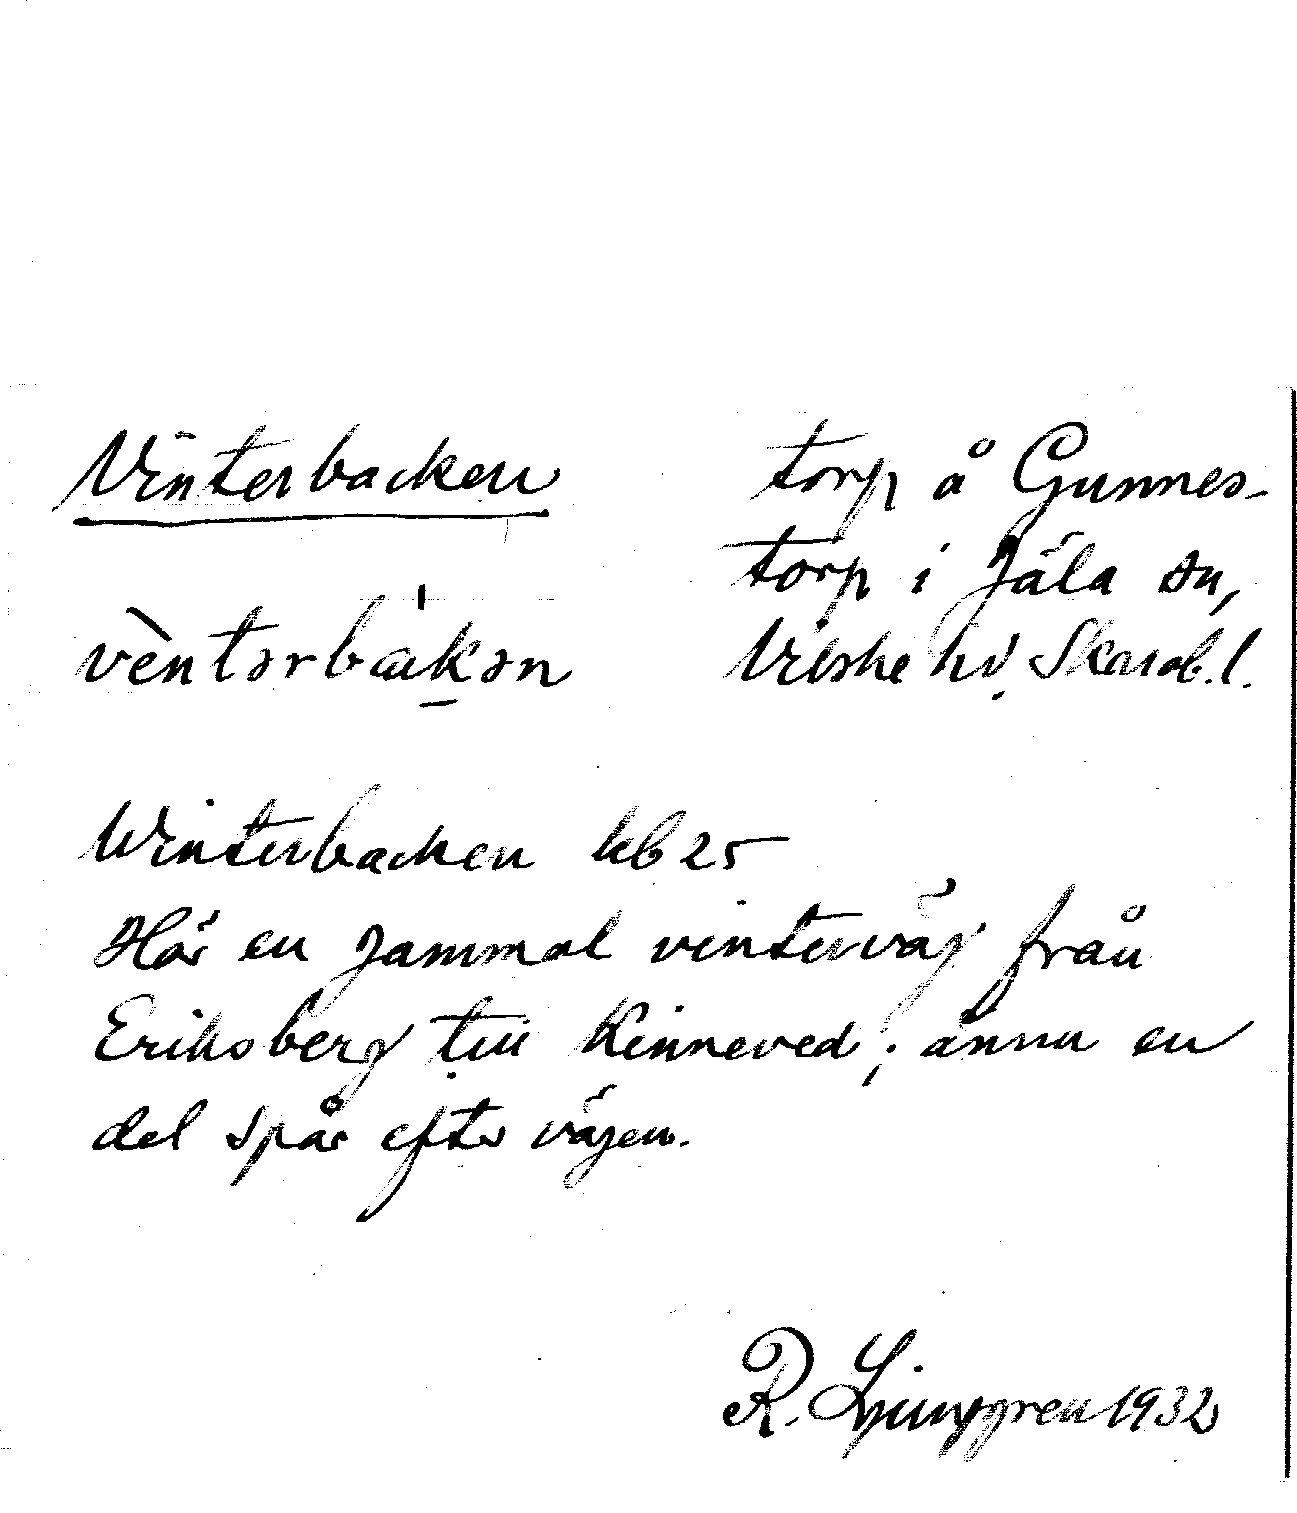 Vinterbacken
torp å Gunnes-
torp i Jäla sn,
Vilske hd. Skarab.l.
vènterbakən
Winterbacken kb 25
Här en gammal vinterväg från
Eriksberg till Kinneved; ännu en
del spår efter vägen.
R. Ljunggren 1932